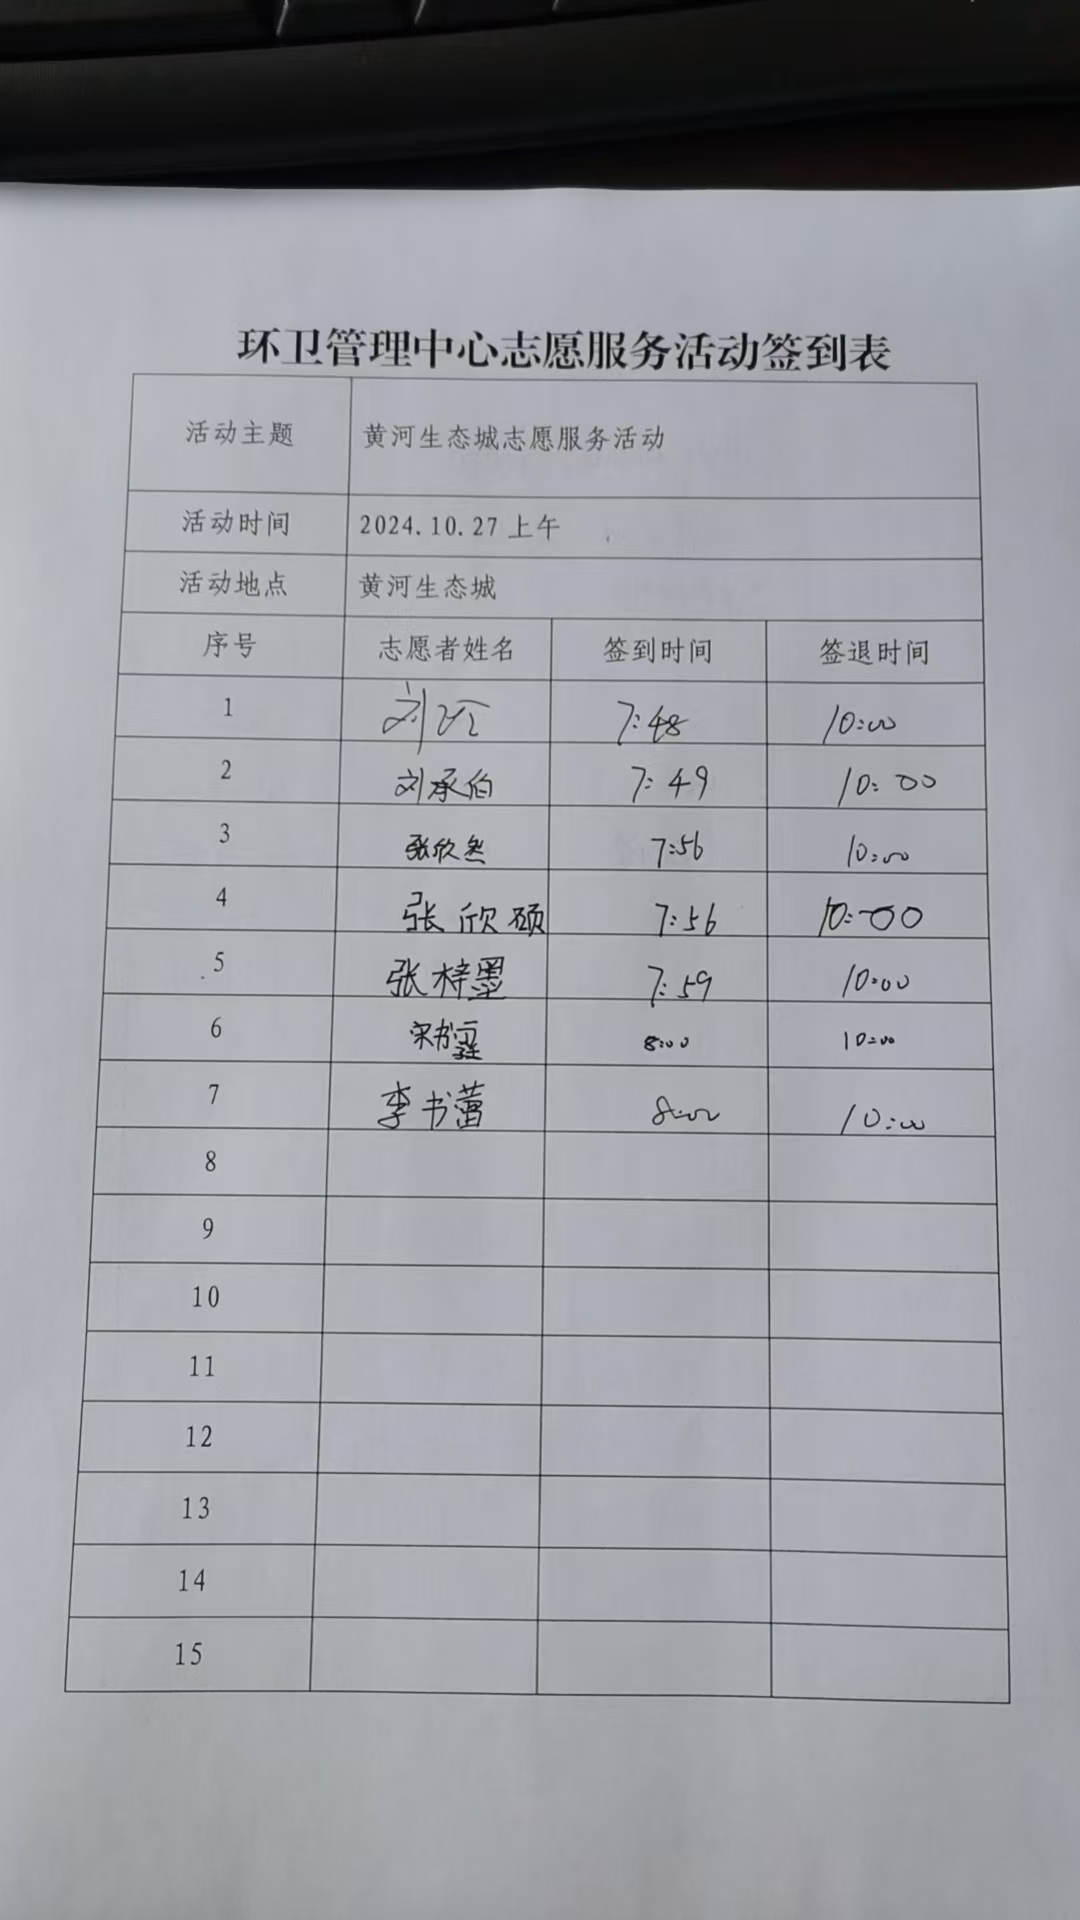 环卫管理中心志愿服务活动签到表
活动主题 黄河生态城志愿服务活动
活动时间 2024.10.27 上午
活动地点 黄河生态城
序号 志愿者姓名 签到时间 签退时间
1 刘 7:48 10:00
2 刘承伯 7:49 10:00
3 张欣然 7:56 10:00
4 张欣硕 7:56 10:00
5 张梓墨 7:59 10:00
6 宋书 8:00 10:00
7 李书蕾 8:00 10:00
8
9
10
11
12
13
14
15